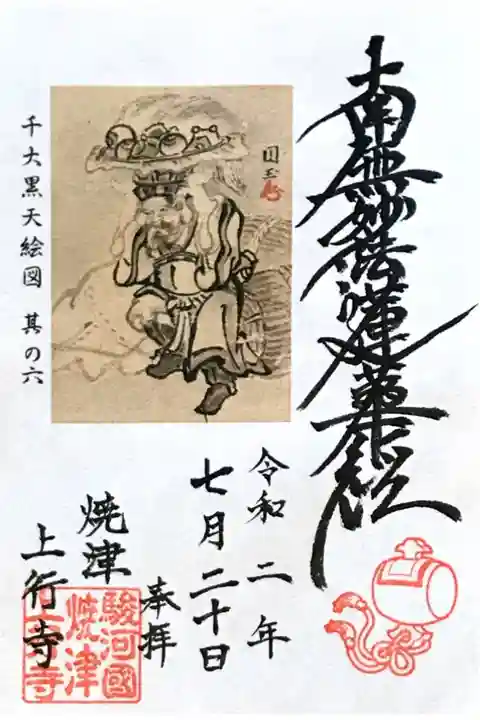 南無妙法蓮華経
千大黒天絵図 其の六
国玉
令和二年
七月二十日
奉拝
焼津
上行寺
駿河國
焼津
上行寺